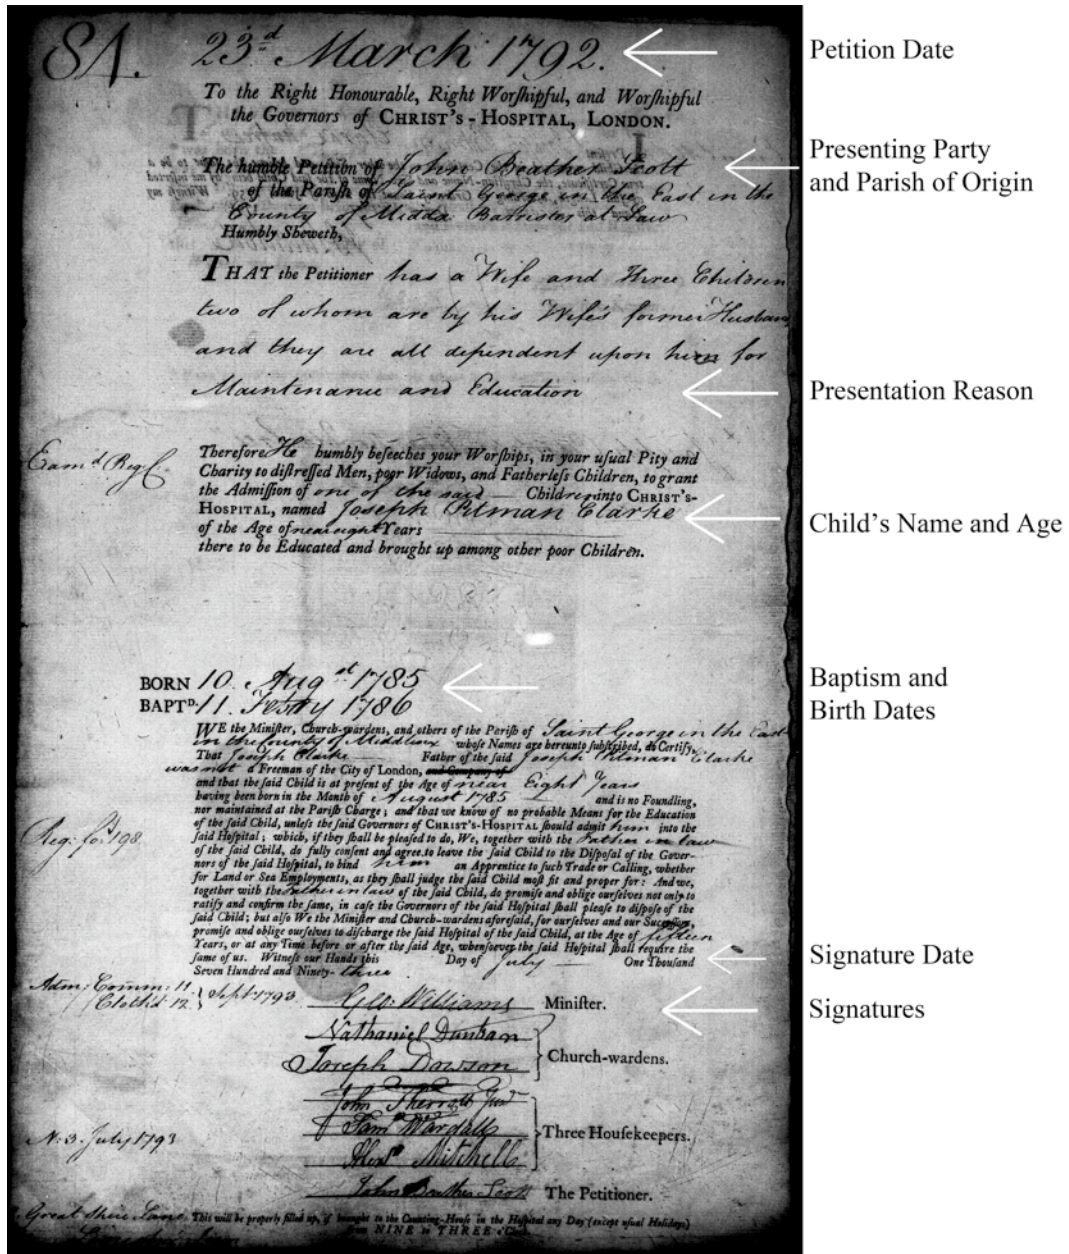 84. 23d March 1792.
Petition Date
To the Right Honourable, Right Worſhipful, and Worſhipful
the Governors of CHRIST'S-HOSPITAL, LONDON.
The humble Petition of John Brather Scott
of the Pariſh of Saint George in the East in the
County of Middx Barrister at Law
Humbly Sheweth,
Presenting Party
and Parish of Origin
THAT the Petitioner has a Wife and Three Children
two of whom are by his Wife's former Husband
and they are all dependent upon him for
Maintenance and Education
Presentation Reason
Exam.d Reg
Therefore He humbly beſeeches your Worſhips, in your uſual Pity and
Charity to diſtreſſed Men, poor Widows, and Fatherleſs Children, to grant
the Admiſſion of one of the said Children into CHRIST'S-
HOSPITAL, named Joseph Pitman Clarke
of the Age of near eight Years
there to be Educated and brought up among other poor Children.
Child's Name and Age
BORN 10. Augst 1785
BAPTD. 11. Febry 1786
Baptism and
Birth Dates
WE the Miniſter, Church-wardens, and others of the Pariſh of Saint George in the East
in the County of Middlesex whoſe Names are hereunto ſubſcribed, do Certify,
That Joseph Clarke Father of the ſaid Joseph Pitman Clarke
was not a Freeman of the City of London, and Company of
and that the ſaid Child is at preſent of the Age of near Eight Years
having been born in the Month of August 1785 and is no Foundling,
nor maintained at the Pariſh Charge; and that we know of no probable Means for the Education
of the ſaid Child, unleſs the ſaid Governors of CHRIST'S-HOSPITAL ſhould admit him into the
ſaid Hoſpital; which, if they ſhall be pleaſed to do, We, together with the Father in law
of the ſaid Child, do fully conſent and agree to leave the ſaid Child to the Diſpoſal of the Gover-
nors of the ſaid Hoſpital, to bind him an Apprentice to ſuch Trade or Calling, whether
for Land or Sea Employments, as they ſhall judge the ſaid Child moſt fit and proper for: And we,
together with the Father in law of the ſaid Child, do promiſe and oblige ourſelves not only to
ratify and confirm the ſame, in caſe the Governors of the ſaid Hoſpital ſhall pleaſe to diſpoſe of the
ſaid Child; but alſo We the Miniſter and Church-wardens aforeſaid, for ourſelves and our Succeſſors,
promiſe and oblige ourſelves to diſcharge the ſaid Hoſpital of the ſaid Child, at the Age of fifteen
Years, or at any Time before or after the ſaid Age, whenſoever the ſaid Hoſpital ſhall require the
ſame of us. Witneſs our Hands this Day of July One Thouſand
Seven Hundred and Ninety- three
Reg: fo: 198
Signature Date
Signatures
Adm: Comm: 11.
Cloth'd 12. } Sept 1793.
Geo: Williams Miniſter.
Nathaniel Dunban
Joseph Dowson
Church-wardens.
John Sherratt Junr
Saml Wardall
Alexr Mitchell
Three Houſekeepers.
N. 3. July 1793
John Brather Scott The Petitioner.
Great Shire Lane
This will be properly filled up, if brought to the Counting-Houſe in the Hoſpital any Day (except uſual Holidays)
from NINE to THREE o'Clock.